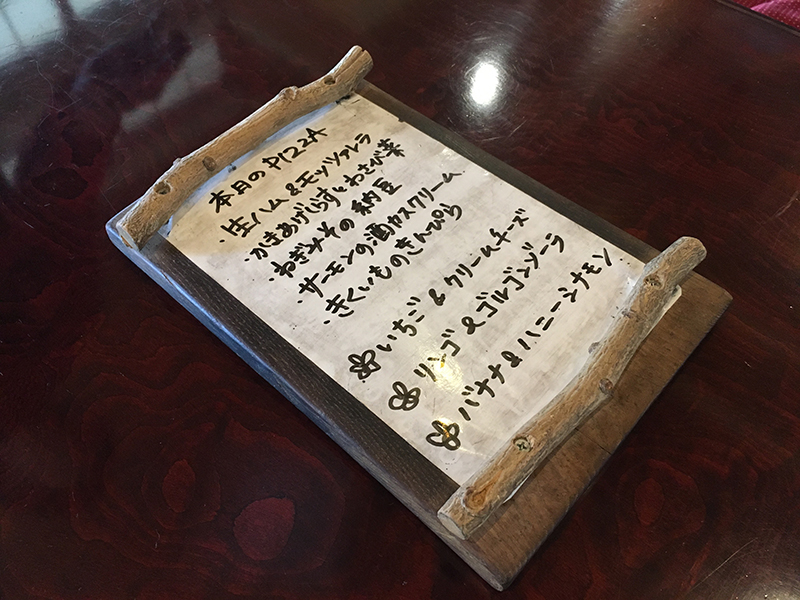 本日のPIZZA
・生ハム&モッツァレラ
・かまあげしらすとわさび菜
・ねぎみその納豆
・サーモンの酒カスクリーム
・きくいものきんぴら
いちご&クリームチーズ
リンゴ&ゴルゴンゾーラ
バナナ&ハニーシナモン